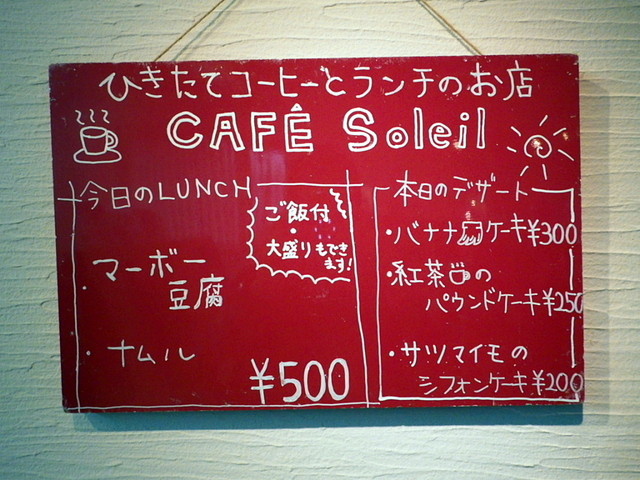 ひきたてコーヒーとランチのお店
CAFÊ Soleil
今日のLUNCH
ご飯付
・
大盛りもでき
ます!
・マーボー
豆腐
・ナムル
¥500
本日のデザート
・バナナケーキ¥300
・紅茶の
パウンドケーキ¥250
・サツマイモの
シフォンケーキ¥200